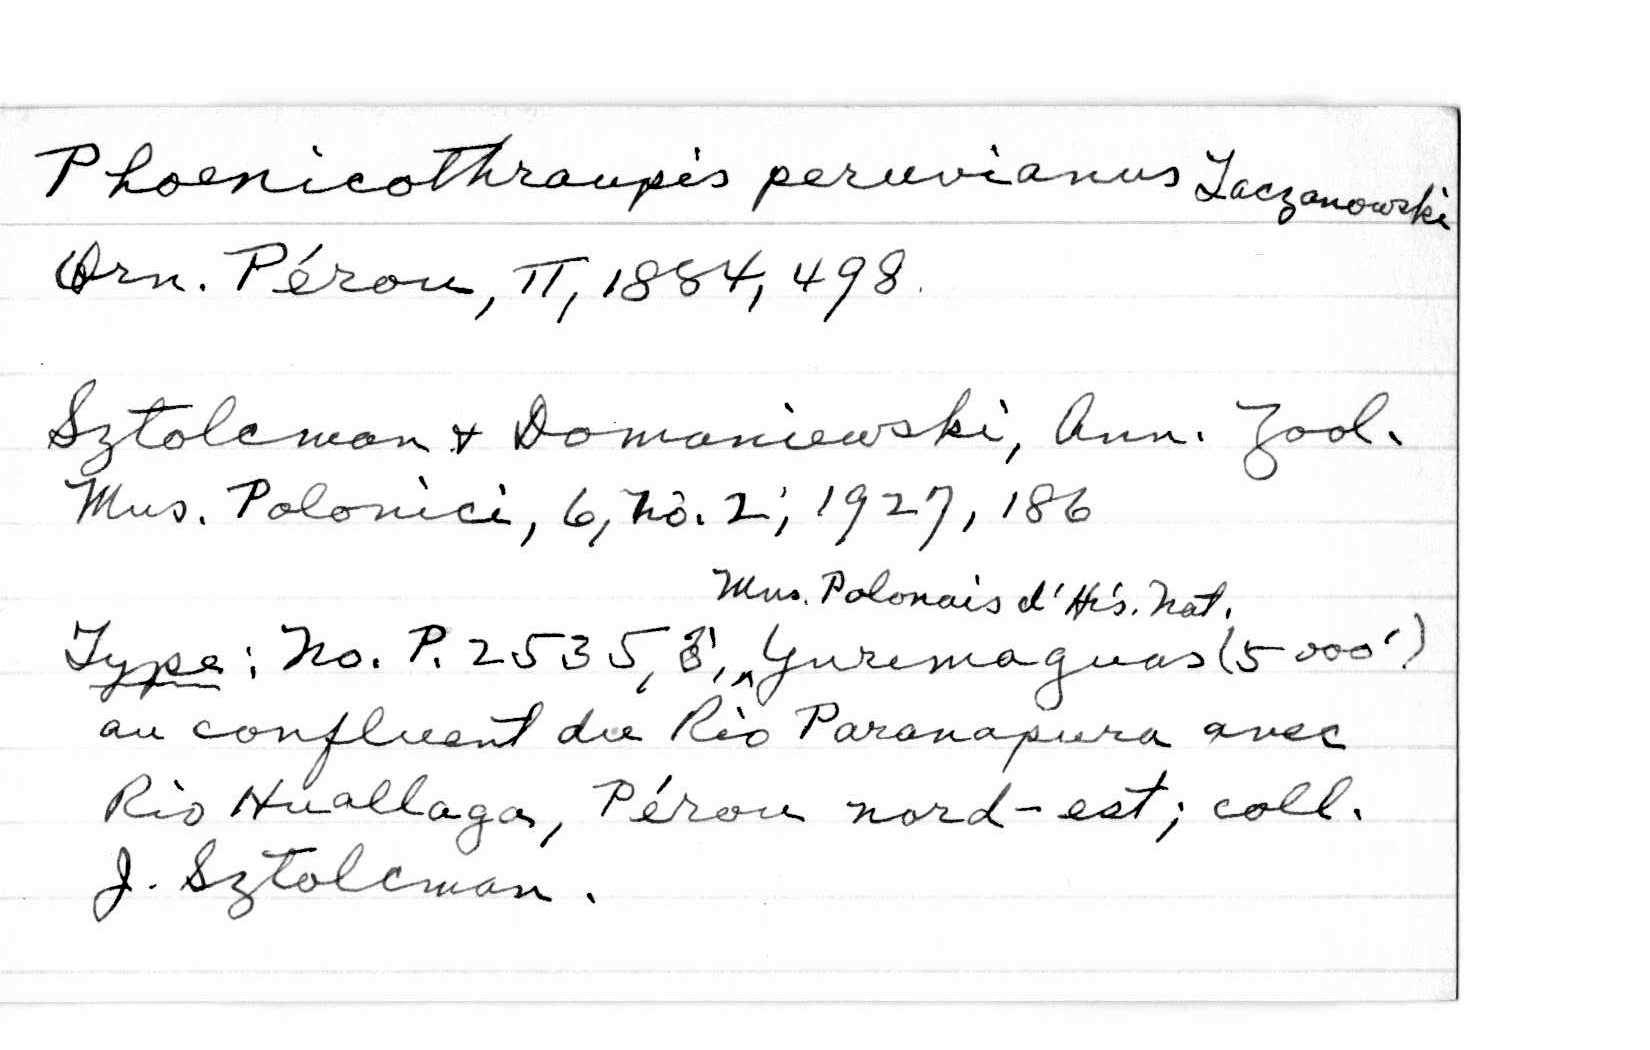 Phoenicothraupis peruvianus Taczanowski
Orn. Pérou, II, 1884, 498.
Sztolcman & Domaniewski, Ann. Zool.
Mus. Polonici, 6, no. 2, 1927, 186
Mus. Polonais d'His. Nat.
Type: No. P. 2535, ♂, ^ Yurimaguas (5000')
au confluent du Rio Paranapura avec
Rio Huallaga, Pérou nord-est; coll.
J. Sztolcman.